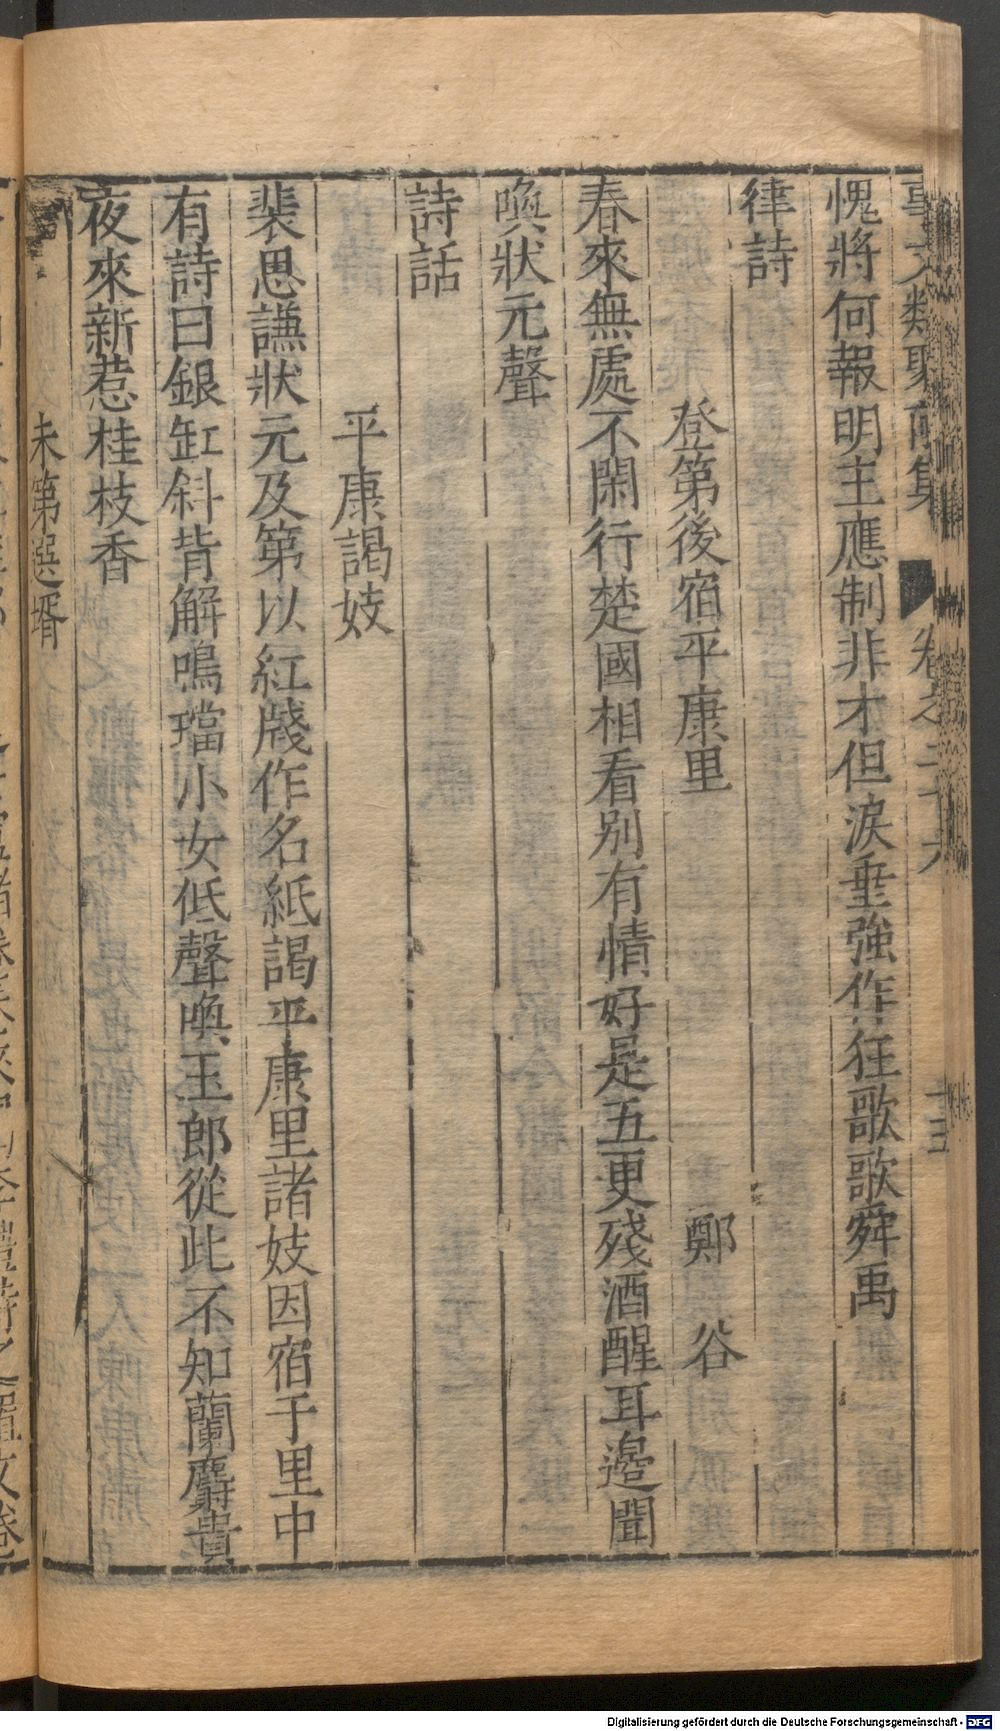 事文類聚前集 卷之二十六 十三
愧將何報明主應制非才但淚垂強作狂歌歌舜禹
律詩
登第後宿平康里 鄭 谷
春來無處不閑行楚國相看別有情好是五更殘酒醒耳邊聞
喚狀元聲
詩話
平康謁妓
裴思謙狀元及第以紅牋作名紙謁平康里諸妓因宿于里中
有詩曰銀缸斜背解鳴璫小女低聲喚玉郎從此不知蘭麝貴
夜來新惹桂枝香
未第選壻
Digitalisierung gefördert durch die Deutsche Forschungsgemeinschaft - DFG